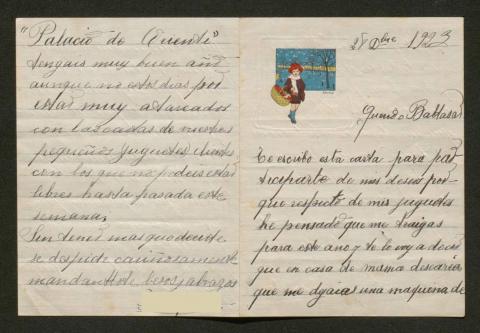 28 Dbre 1923
Querido Baltasar
Te escribo esta carta para par-
ticiparte de mis deseos por-
que respecto de mis juguetes
he pensado que me traigas
para este año y te lo voy a decir
que en casa de mamá desearia
que me dejaras una maquena de
"Palacio de Oriente"
tengais muy buen año
aunque no estos dias por
estar muy atareados
con las cartas de nuestros
pequeños juguetes
con los que no podeis estar
libres hasta pasada este
semana.
Sin tener mas que decirte
se despide cariñosamente
mandandote besos y abrazos